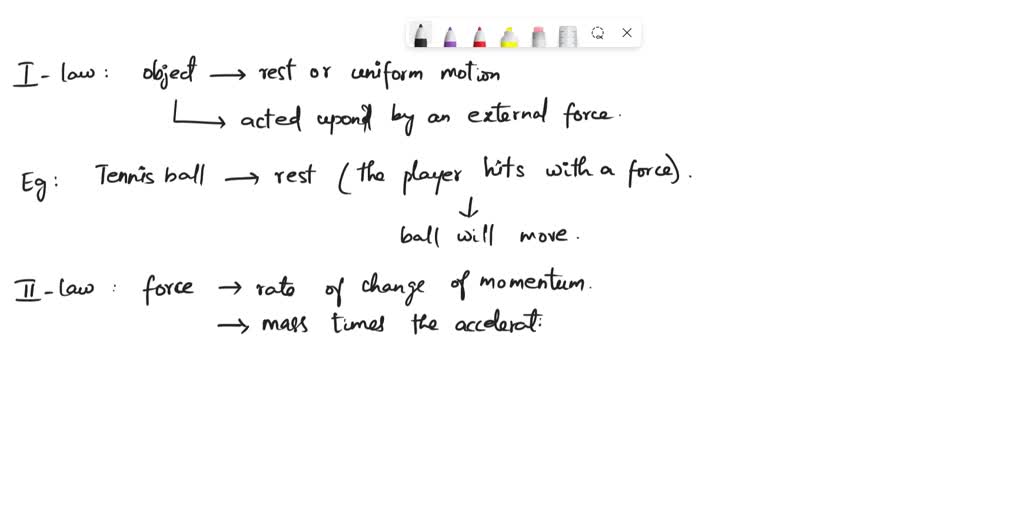 I - law : object → rest or uniform motion
↳ acted upon by an external force.
Eg : Tennis ball → rest (the player hits with a force).
↓
ball will move.
II - law : force → rate of change of momentum.
→ mass times the accelerat: